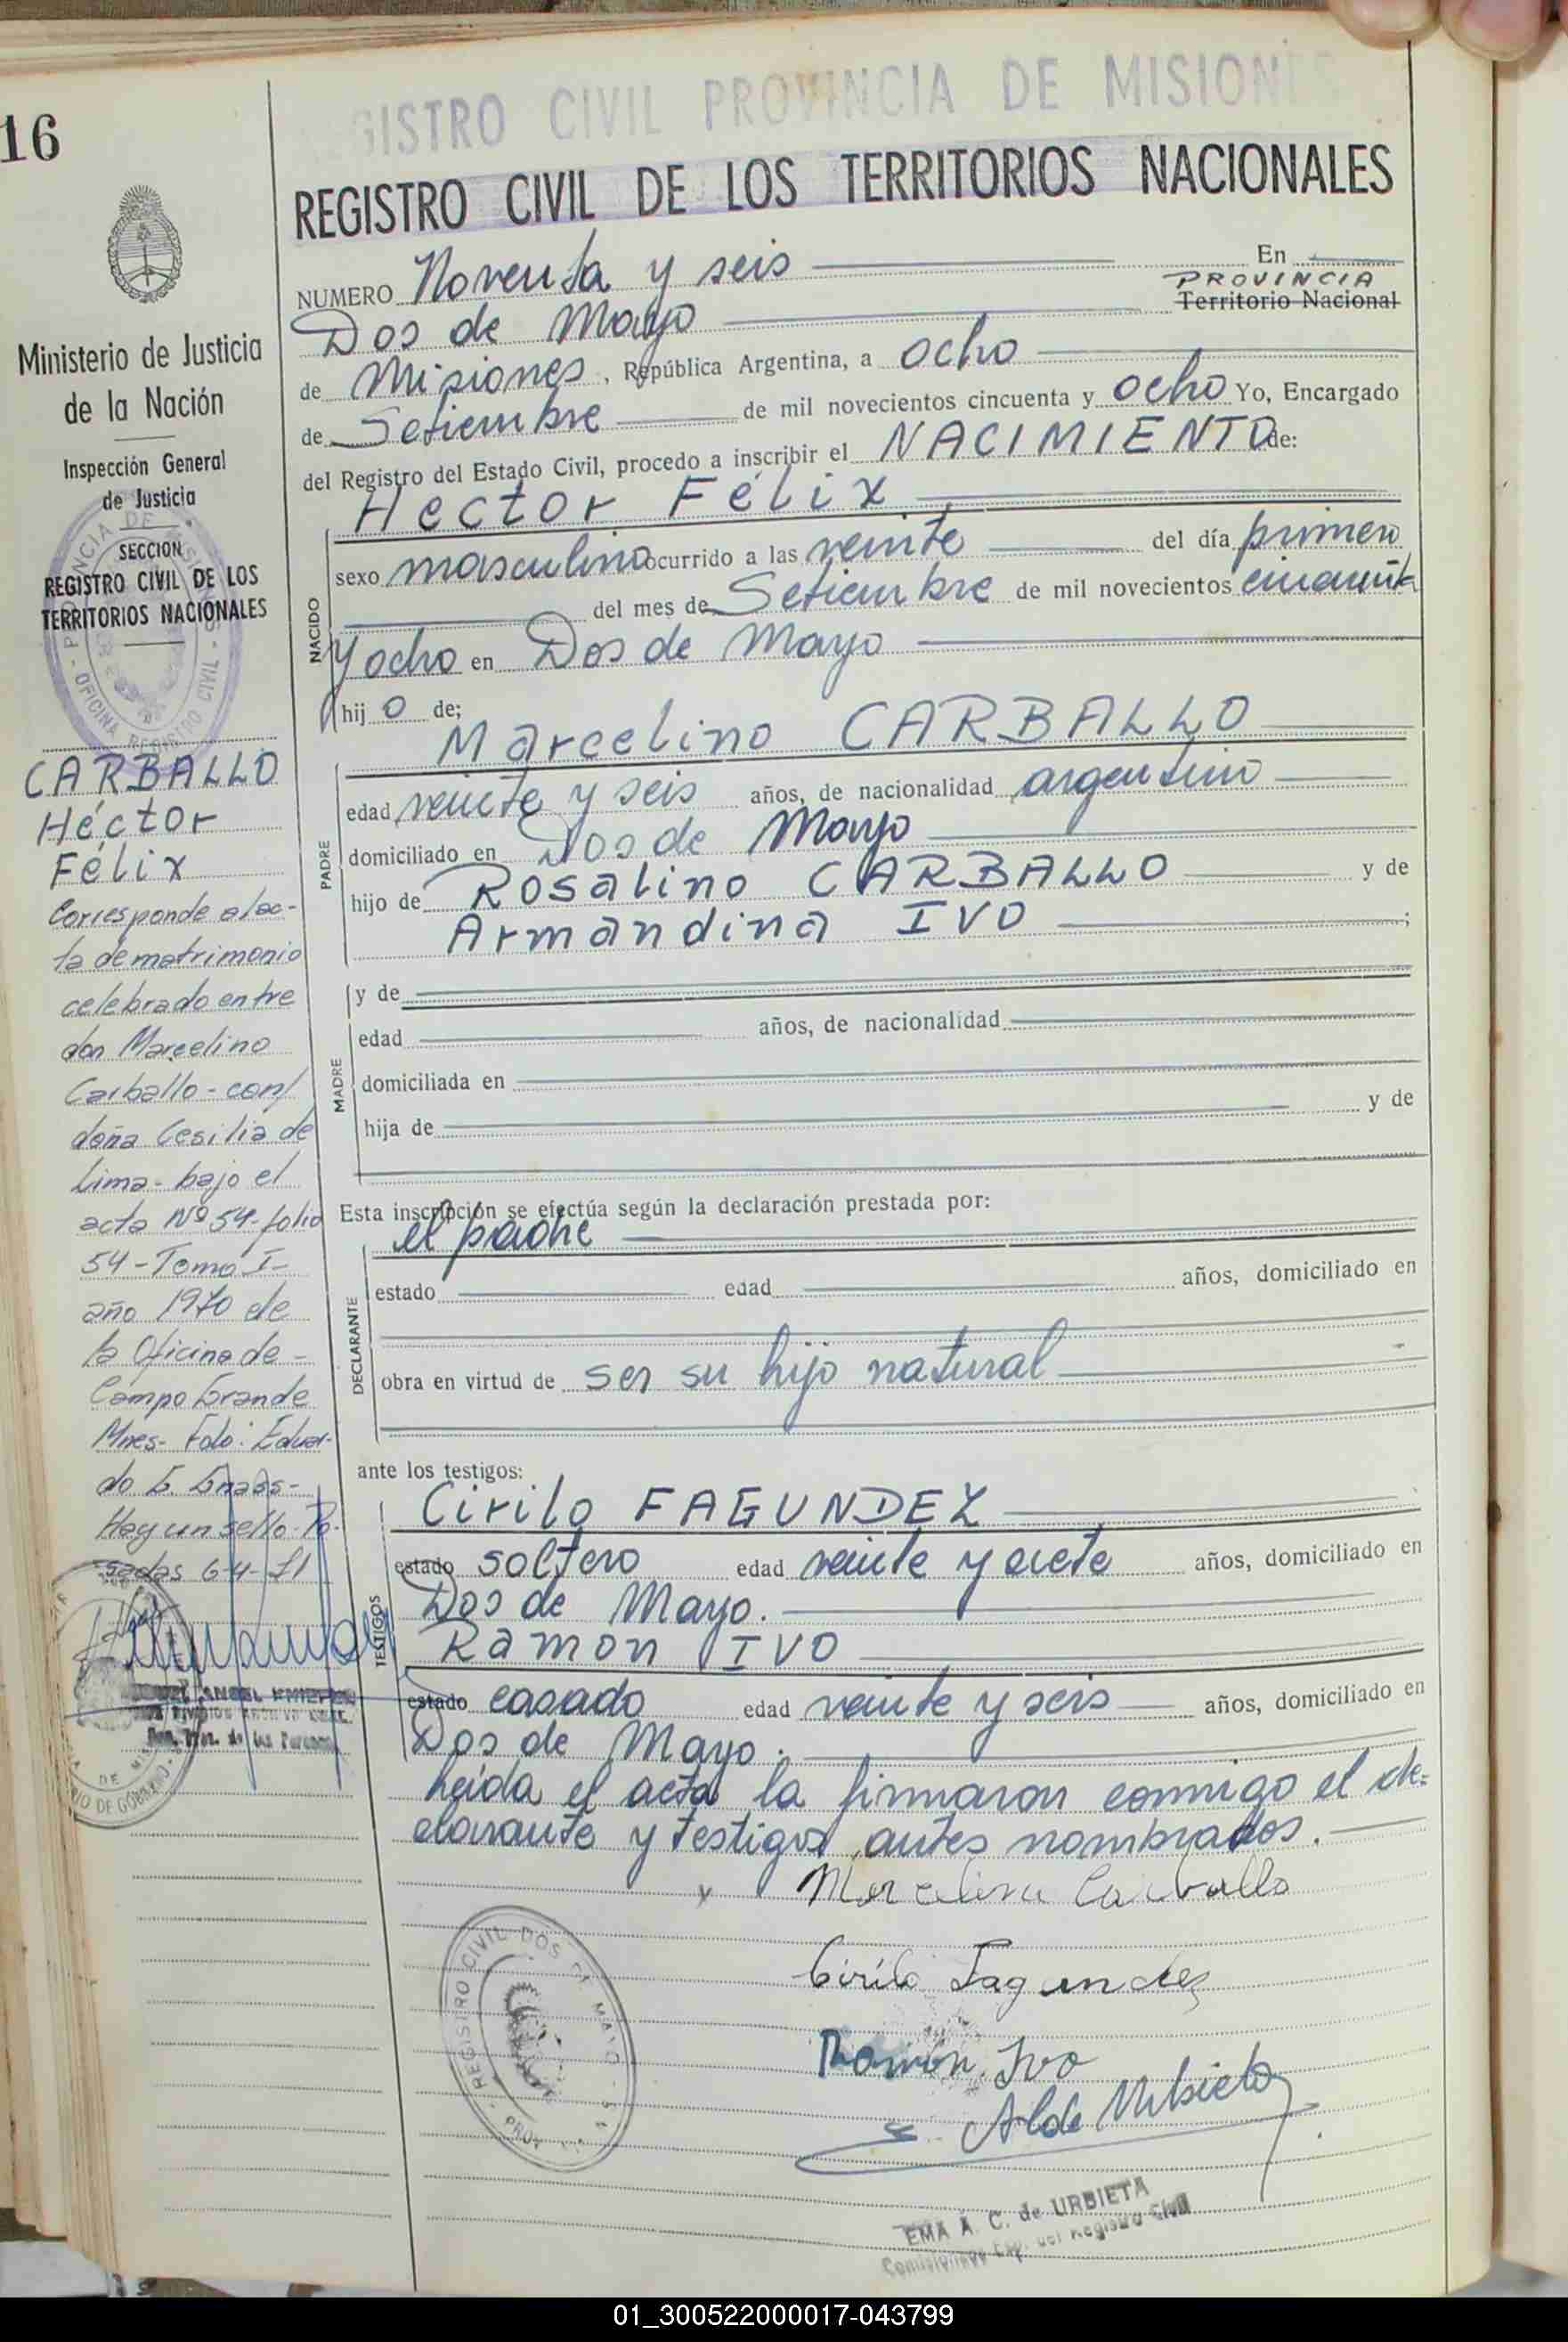 REGISTRO CIVIL PROVINCIA DE MISIONES
16
REGISTRO CIVIL DE LOS TERRITORIOS NACIONALES
NUMERO Noventa y seis En
Dos de Mayo PROVINCIA Territorio Nacional
de Misiones, República Argentina, a ocho
de Setiembre de mil novecientos cincuenta y ocho Yo, Encargado
del Registro del Estado Civil, procedo a inscribir el NACIMIENTO de:
Hector Félix
NACIDO
sexo masculino ocurrido a las veinte del día primero
del mes de Setiembre de mil novecientos cincuenta
y ocho en Dos de Mayo
hijo de;
Marcelino CARBALLO
PADRE
edad veinte y seis años, de nacionalidad argentino
domiciliado en Dos de Mayo
hijo de Rosalino CARBALLO y de
Armandina IVO ;
MADRE
y de
edad años, de nacionalidad
domiciliada en
hija de y de
Esta inscripción se efectúa según la declaración prestada por:
el padre
DECLARANTE
estado edad años, domiciliado en
obra en virtud de ser su hijo natural
ante los testigos:
TESTIGOS
Cirilo FAGUNDEZ
estado soltero edad veinte y siete años, domiciliado en
Dos de Mayo.
Ramon IVO
estado casado edad veinte y seis años, domiciliado en
Dos de Mayo.
Leída el acta la firmaron conmigo el de=
clarante y testigos antes nombrados.
Marcelino Carballo
Cirilo Fagundez
Ramón Ivo
E. A. de Urbieta
REGISTRO CIVIL DOS DE MAYO
EMA A. C. de URBIETA
Ministerio de Justicia
de la Nación
Inspección General
de Justicia
SECCION
REGISTRO CIVIL DE LOS
TERRITORIOS NACIONALES
CARBALLO
Héctor
Félix
Corresponde al ac-
ta de matrimonio
celebrado entre
don Marcelino
Carballo - con/
doña Cesilia de
Lima - bajo el
acta Nº 54 - folio
54 - Tomo I -
año 1970 de
la Oficina de -
Campo Grande
Mnes - Fdo: Eduar-
do
Hay un sello - Po-
sadas
01_300522000017-043799